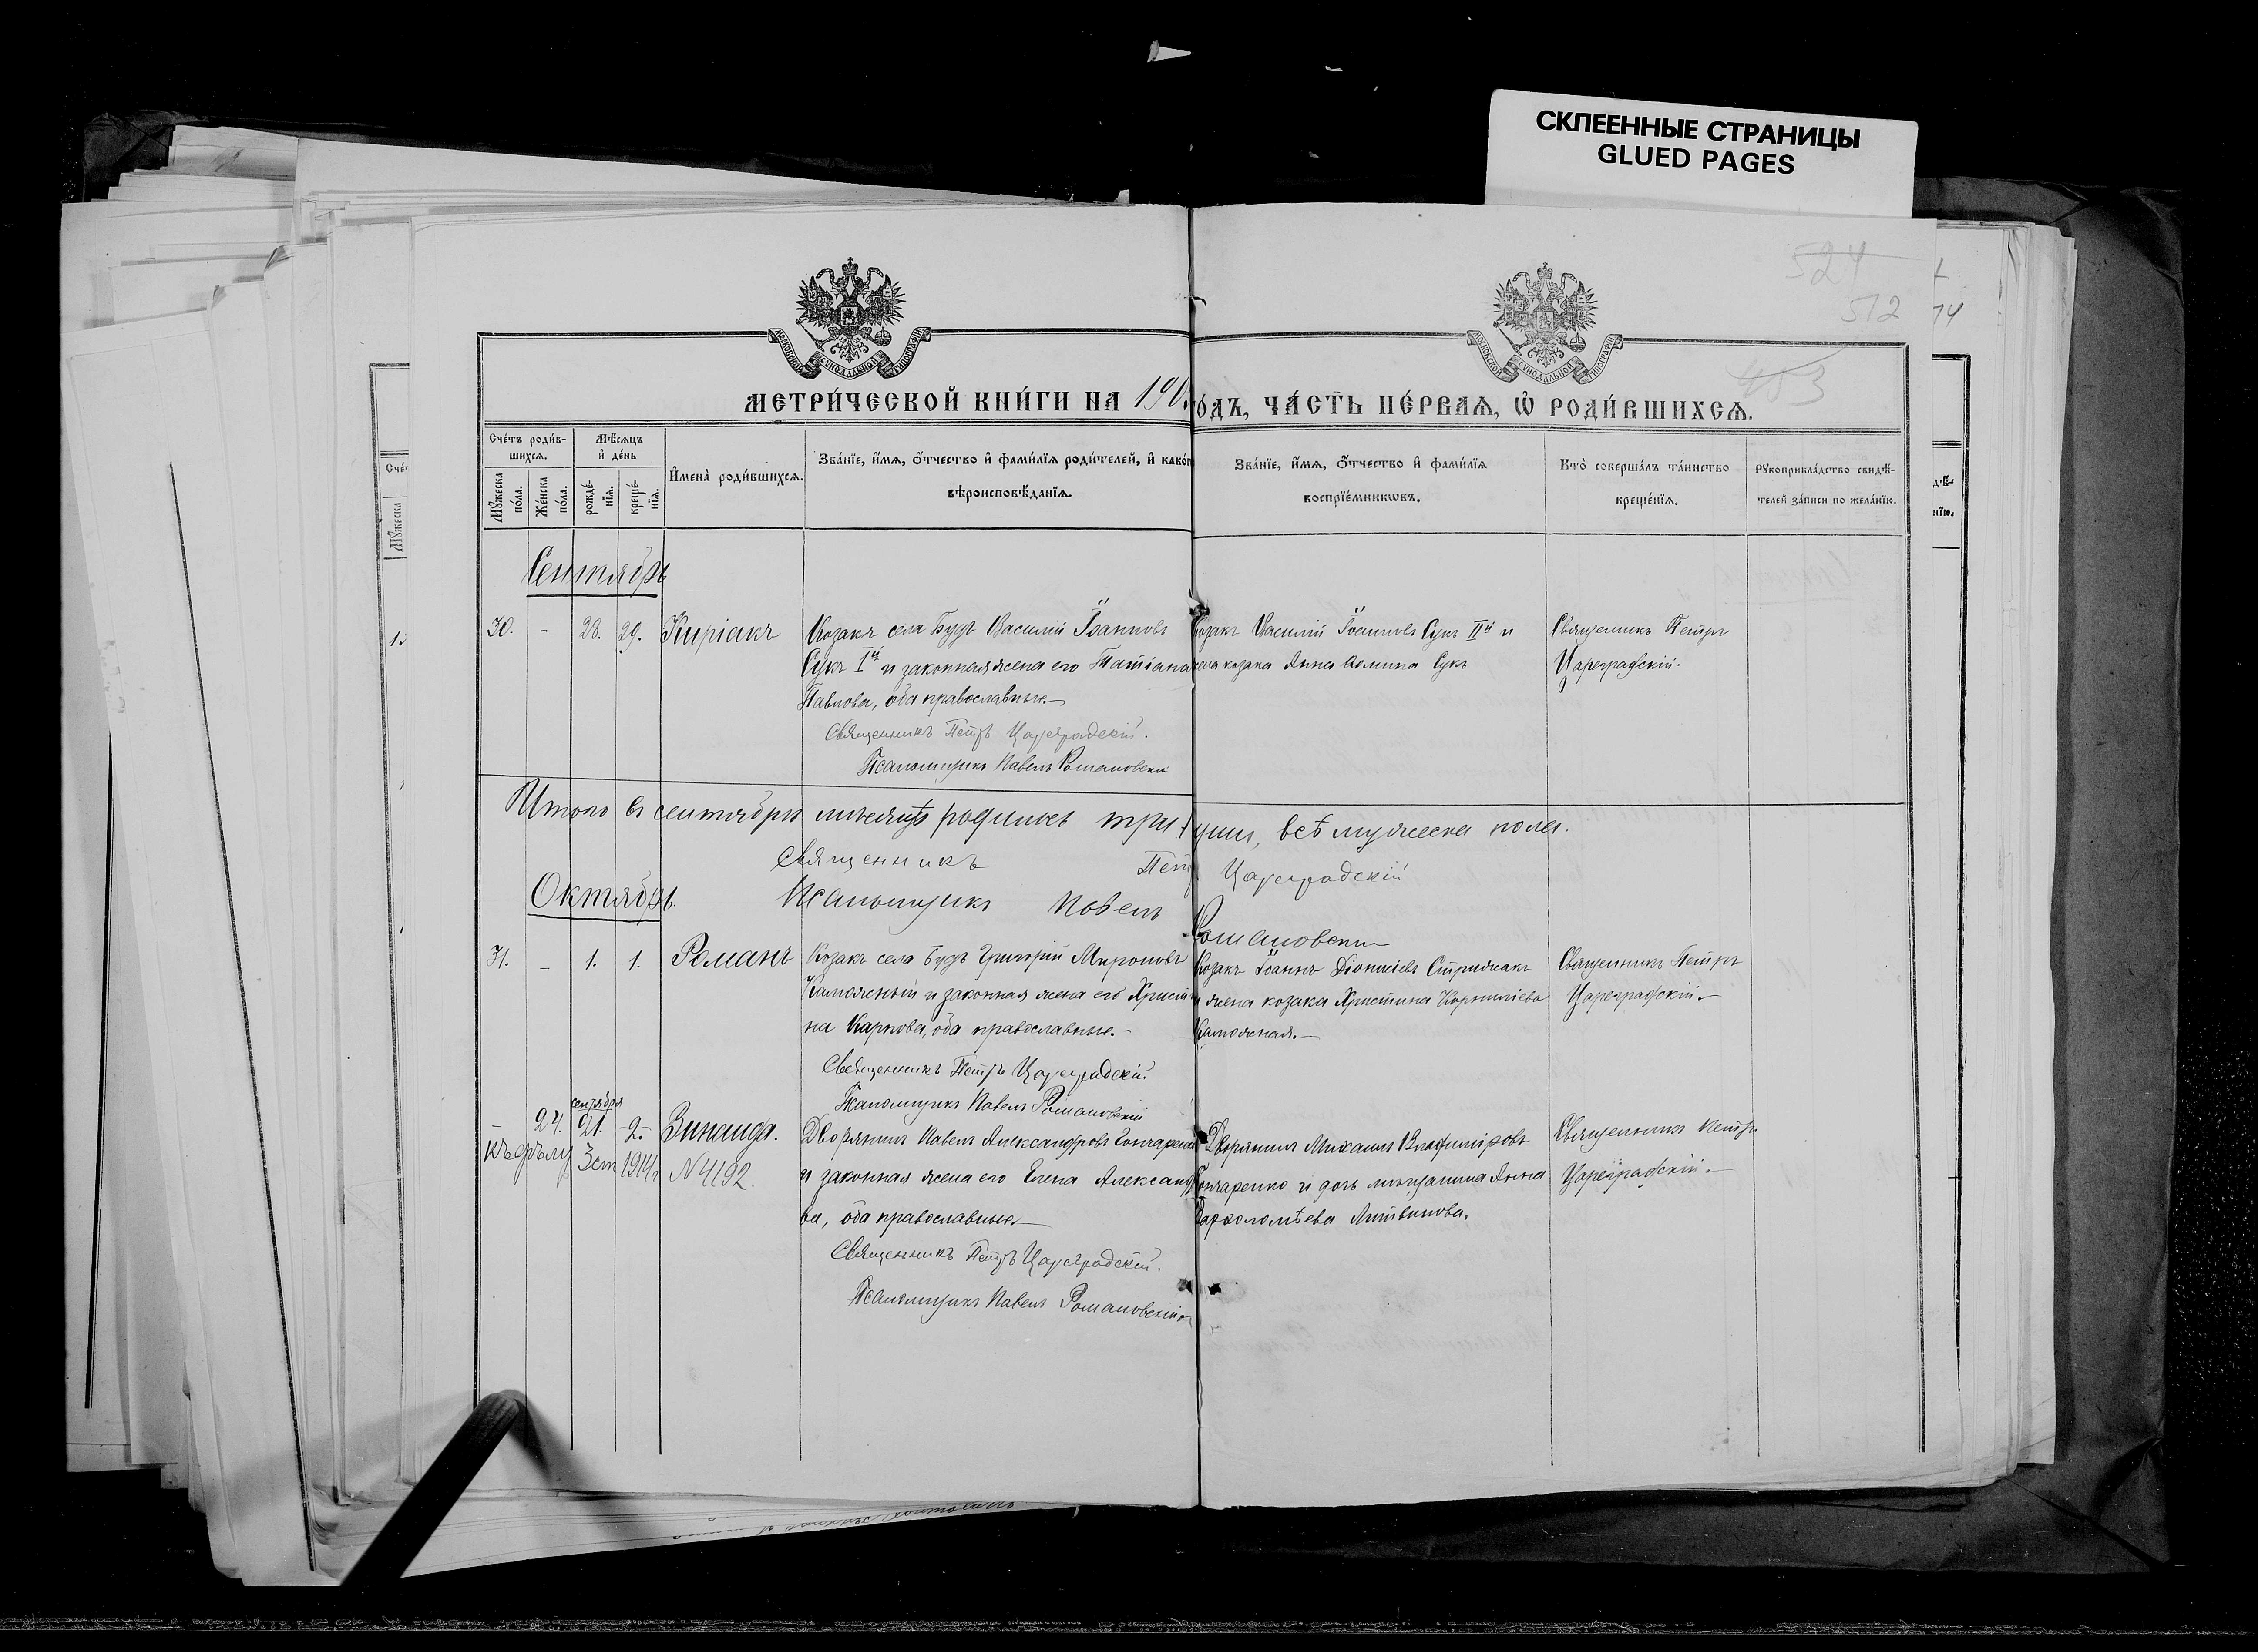 СКЛЕЕННЫЕ СТРАНИЦЫ
GLUED PAGES
524
512
453
МЕТРИ́ЧЕСКОЙ КНИ́ГИ НА 190
О́ДЪ, ЧА́СТЬ ПЕ́РВАЯ, Ѽ РОДИ́ВШИХСѦ.
Сче́тъ роди́в-
шихся.
Мѣ́сяцъ
и де́нь
Имена̀ роди́вшихся.
Зва́нїе, и́мя, ѻ́тчество и фами́лїя роди́телей, и како́г
вѣроисповѣ́данїя.
Зва́нїе, и́мя, ѻ́тчество и фами́лїя
воспрїе́мникѡвъ.
Кто̀ соверша́лъ та́инство
креще́нїя.
Рꙋкоприкла́дство свидѣ́-
телей за́писи по жела́нїю.
Мꙋ́жеска
по́ла.
Же́нска
по́ла.
рожде́-
нїя.
креще́-
нїя.
Сентябрь
30. - 28. 29. Киріакъ
Козакъ села Будъ Василій Іоанновъ
Сукъ Iй и законная жена его Татіана
Павлова, оба православные.
Священникъ Петръ Цареградскій.
Псаломщикъ Павелъ Романовскій
Козакъ Василій Іоанновъ Сукъ IIй и
жена козака Анна Сукъ
Священникъ Петръ
Цареградскій.
Итого въ сентябрѣ мѣсяцѣ родилось три души, всѣ мужеска пола.
Священникъ Петръ Цареградскій
Псаломщикъ Павелъ Романовскій
Октябрь.
31. - 1. 1. Романъ
Козакъ села Будъ Григорій Мироновъ
Каможный и законная жена его Христи
на Карпова, оба православные.-
Священникъ Петръ Цареградскій
Псаломщикъ Павелъ Романовскій
Козакъ Іоаннъ Діонисіевъ Стрижакъ
и жена козака Христина Корниліева
Каможная.
Священникъ Петръ
Цареградскій.
сентября
- 24. 21. 2. Зинаида.
къ дѣлу 3 ст 1914 г N 4192.
Дворянинъ Павелъ Александровъ Гончаренко
и законная жена его Елена Александро
ва, оба православные
Священникъ Петръ Цареградскій.
Псаломщикъ Павелъ Романовскій
Дворянинъ Михаилъ Владиміровъ
Гончаренко и дочь мѣщанина Анна
Варѳоломѣева Литвинова.
Священникъ Петръ
Цареградскій.